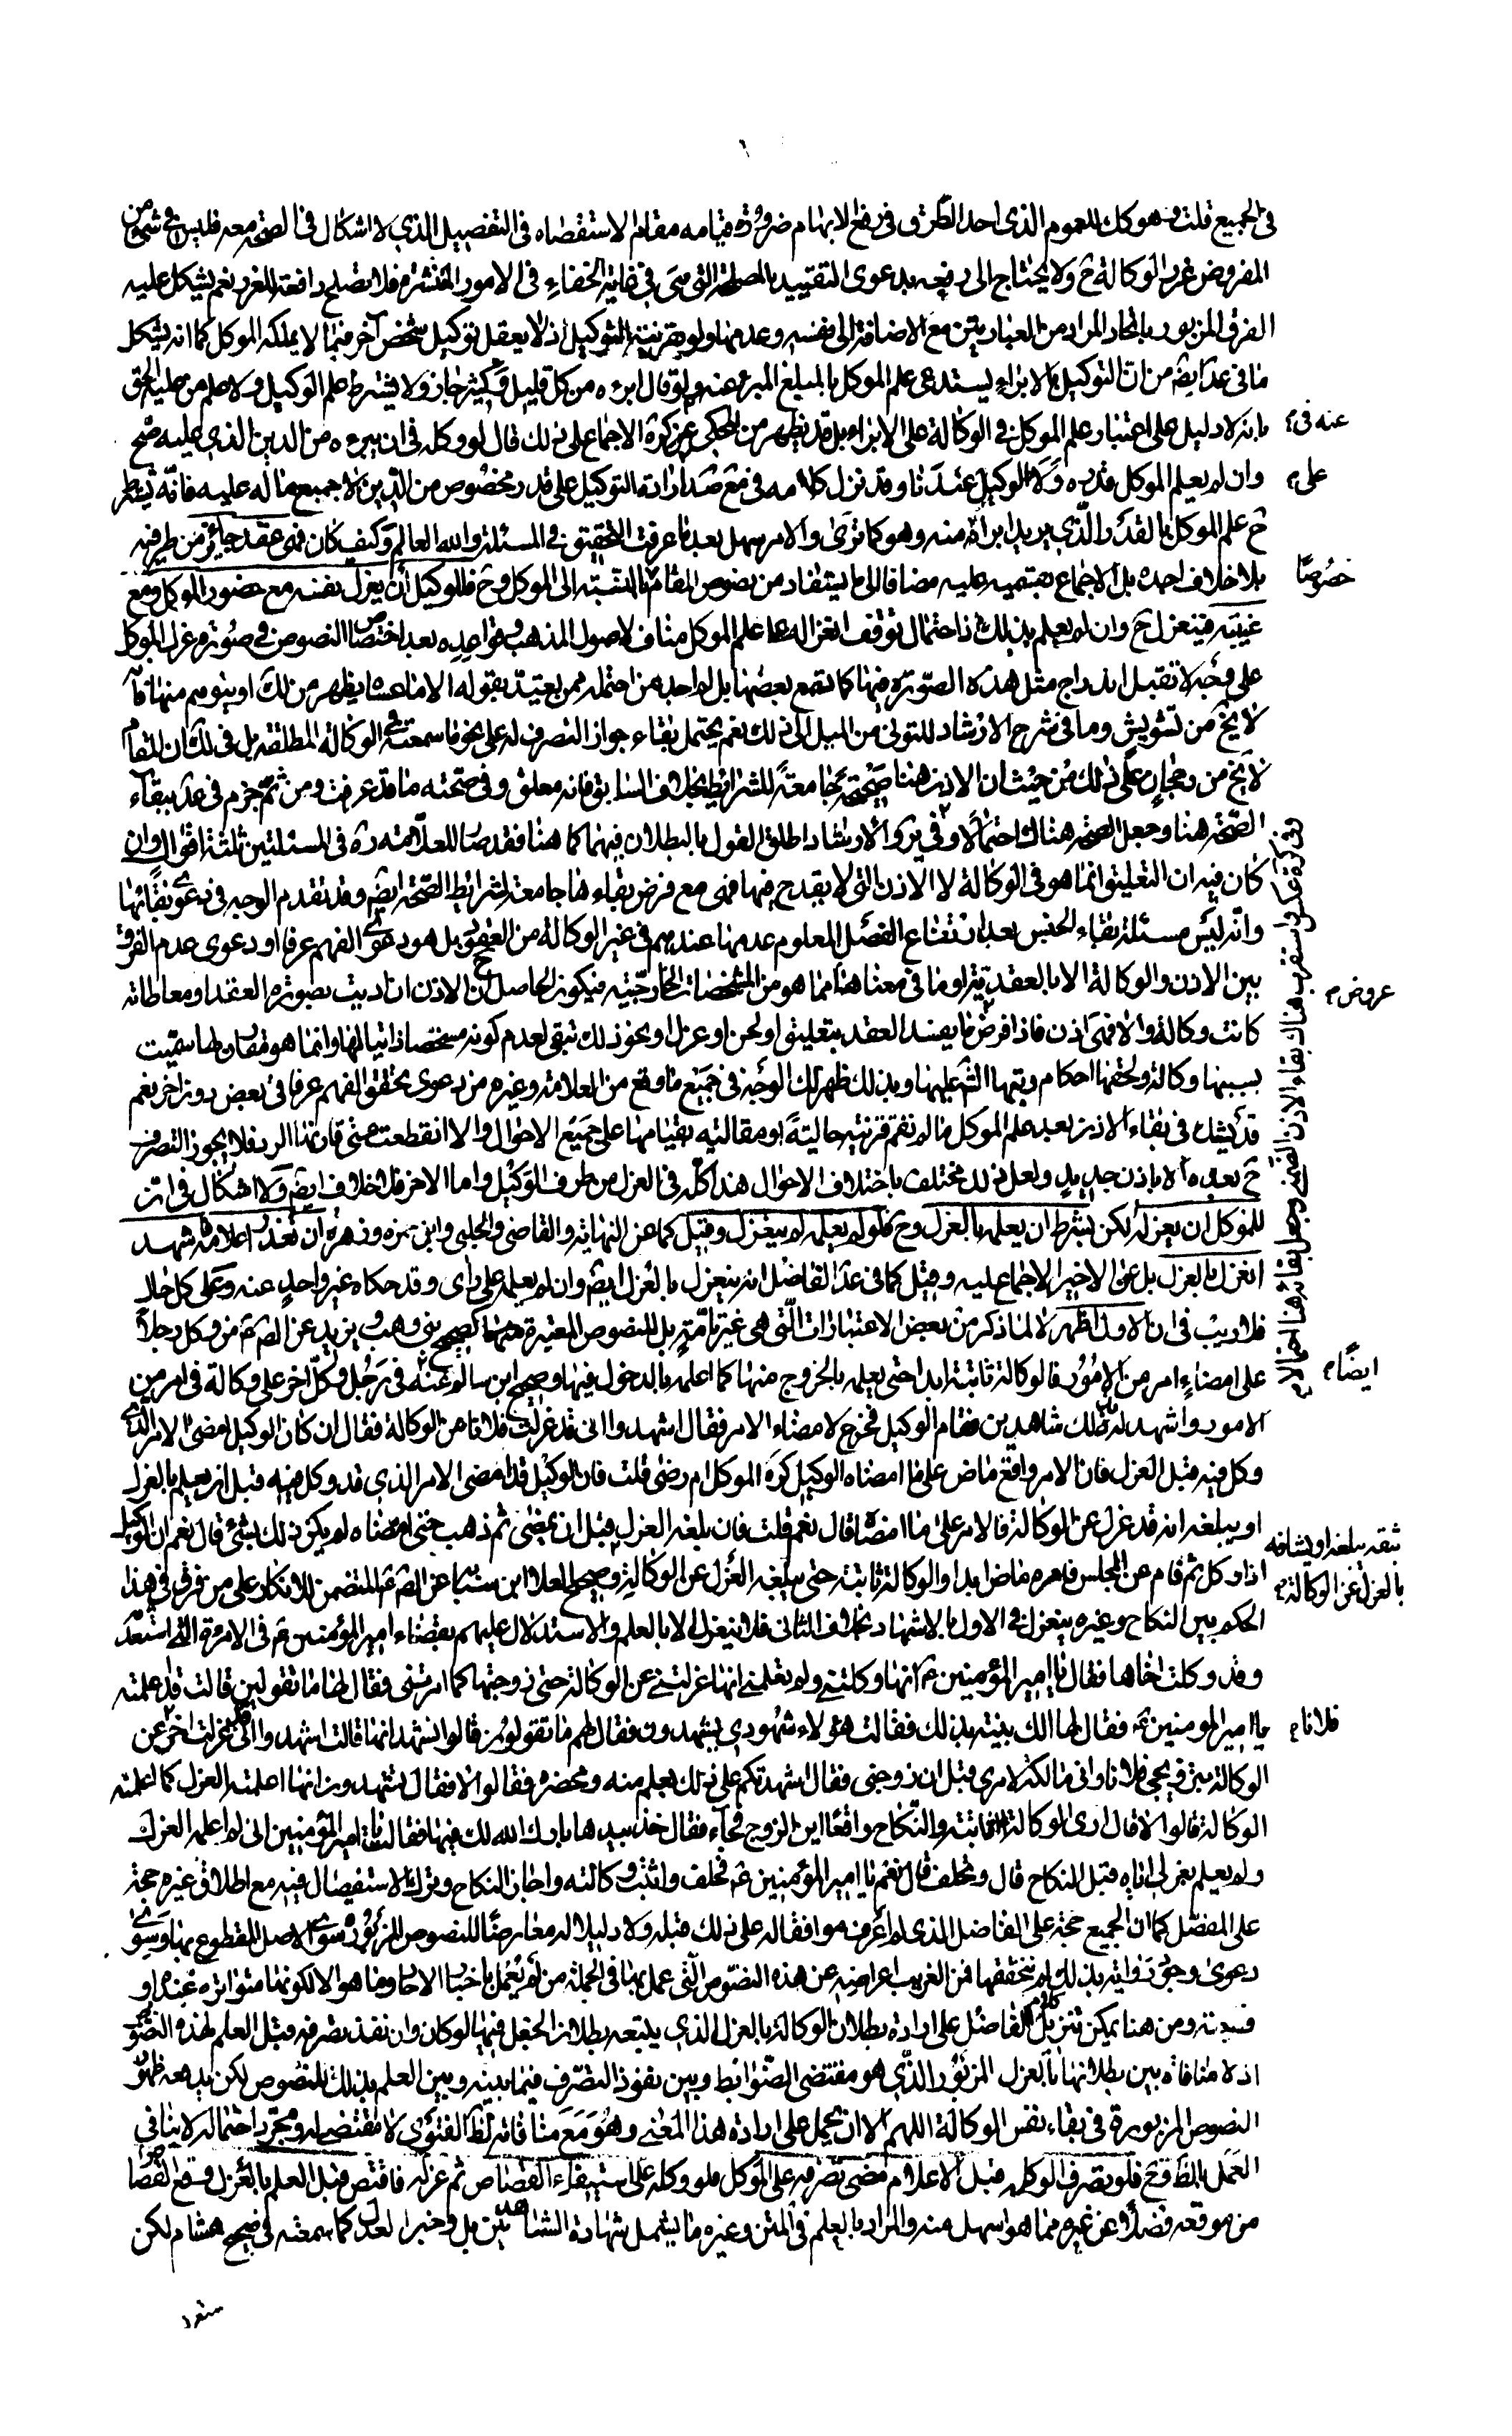 في الجميع قلت هو كك للعموم الذي احد الطرق في رفع الابهام ضرورة قيامه مقام الاستقصاء في التفصيل الذي لا اشكال في الصحة معه فليس في شيء من
المفروض غرر الوكالة ح ولا يحتاج الى رفعه بدعوى التقييد بالمصلحة التي هي في غاية الخفاء في الامور المنتشرة فلا تصلح رافعة للغرر نعم يشكل عليه
الفرق المزبور باتحاد المراد من العبارتين مع الاضافة الى نفسه وعدمها ولو بقرينة التوكيل اذ لا يعقل توكيل شخص آخر فيما لا يملكه الموكل كما انه يشكل
ما في عد ايضا من ان التوكيل بالابراء يستدعي علم الموكل بالمبلغ المبرء عنه ولو قال ابرءه من كل قليل وكثير جاز ولا يشترط علم الوكيل ولا علم من عليه الحق
بانه لا دليل على اعتبار علم الموكل في الوكالة على الابراء بل قد يظهر من المحكي عن كرة الاجماع على ذلك قال لو وكله في ان يبرءه من الدين الذي عليه صح
عنه في
وان لم يعلم الموكل قدره ولا الوكيل عندنا وقد نزل كلامه في مع صد ارادة التوكيل على قدر مخصوص من الدين لا جميع ما له عليه فانه يشترط
على
ح علم الموكل بالقدر والذي يريد ابراءه منه وهو كما ترى والامر سهل بعد ما عرفت التحقيق في المسئلة والله العالم وكيف كان فهي عقد جايز من طرفيه
بلا خلاف اجده بل الاجماع بقسميه عليه مضافا الى ما يستفاد من نصوص المقام بالنسبة الى الموكل وح فللوكيل ان يعزل نفسه مع حضور الموكل ومع
خصوصا
غيبته فينعزل ح وان لم يعلم بذلك اذ احتمال توقف انعزاله على علم الموكل مناف لاصول المذهب وقواعده بعد اختصاص النصوص في صورة عزل الموكل
على وجه لا تقبل اندراج مثل هذه الصورة فيها كما تسمع بعضها بل لم اجد من احتمله ممن يعتد بقوله الا ما عساه يظهر من لك او يتوهم منها فانه
لا يخ من تشويش وما في شرح الارشاد للتوني من الميل الى ذلك نعم يحتمل بقاء جواز التصرف له على نحو ما سمعته في الوكالة المطلقة بل في لك ان للمقام
لا يخ من رجحان على ذلك من حيث ان الاذن هنا صحيحة جامعة للشرائط بخلاف السابق فانه معلق وفي صحته ما قد عرفت ومن ثم جزم في عد ببقاء
الصحة هنا وجعل الصحة هناك احتمالا وفي ير والارشاد اطلق القول بالبطلان فيهما كما هنا فقد صار للعلامة ره في المسئلتين ثلثة اقوال وان
وفي كرة عكس واستقرب هناك بقاء الاذن الضمني وجعل بقائه هنا احتمالا
كان فيه ان التعليق انما هو في الوكالة لا الاذن التي لا يقدح فيها فهي مع فرض بقاءها جامعة لشرائط الصحة ايضا وقد تقدم الوجه في دعوى بقائها
وانه ليس مسئلة بقاء الجنس بعد ارتفاع الفصل المعلوم عدمها عندهم في غير الوكالة من العقود بل هو دعوى الفهم عرفا او دعوى عدم الفرق
بين الاذن والوكالة الا بالعقدية او ما في معناها مما هو من المشخصات الخارجية فيكون الحاصل ح ان الاذن ان اديت بصورة العقد او معاطاته
كانت وكالة والا فهي اذن فاذا فرض ما يفسد العقد بتعليق او لحن او عزل او نحو ذلك تبقى لعدم كونه مشخصا ذاتيا لها وانما هو مقارن لها سميت
عروض
بسببها وكالة ولحقها احكام رتبها الش عليها وبذلك ظهر لك الوجه في جميع ما وقع من العلامة وغيره من دعوى تحقق الفهم عرفا في بعض دون اخر نعم
قد يشك في بقاء الاذن بعد علم الموكل ما لم تقم قرينة حالية او مقالية بقيامها على جميع الاحوال والا انقطعت حتى قارن هذا الرد فلا يجوز التصرف
ح بعده الا باذن جديد ولعل ذلك مختلف باختلاف الاحوال هذا كله في العزل من طرف الوكيل واما الاخر فلا خلاف ايضا ولا اشكال في ان
للموكل ان يعزله لكن بشرط ان يعلمه بالعزل وح فلو لم يعلمه لم ينعزل وقيل كما عن النهاية والقاضي والحلبي وابن حمزة وزهرة ان تعذر اعلامه فاشهد
انعزل بالعزل بل عن الاخير الاجماع عليه وقيل كما في عد الفاضل انه ينعزل بالعزل ايضا وان لم يعلمه على رأي وقد حكاه غير واحد عنه وعلى كل حال
فلا ريب في ان الاول اظهر لا لما ذكر من بعض الاعتبارات التي هي غير تامة بل للنصوص المعتبرة منها صحيح بن وهب ويزيد عن الص ع من وكل رجلا
على امضاء امر من الامور فالوكالة ثابتة ابدا حتى يعلمه بالخروج منها كما اعلمه بالدخول فيها وصحيح ابن سالم عنه في رجل وكل اخر على وكالة في امر من
ايضا
الامور واشهد له بذلك شاهدين فقام الوكيل فخرج لامضاء الامر فقال اشهدوا اني قد عزلت فلانا من الوكالة فقال ان كان الوكيل امضى الامر الذي
وكل فيه قبل العزل فان الامر واقع ماض على ما امضاه الوكيل كره الموكل ام رضي قلت فان الوكيل قد امضى الامر الذي قد وكل فيه قبل ان يعلم بالعزل
او يبلغه انه قد عزل عن الوكالة فالامر على ما امضاه قال نعم قلت فان بلغه العزل قبل ان يمضي ثم ذهب حتى امضاه لم يكن ذلك بشئ قال نعم ان الوكيل
اذا وكل ثم قام عن المجلس فامره ماض ابدا والوكالة ثابتة حتى يبلغه العزل عن الوكالة وصحيح العلا ابن سيابة عن الص ع المتضمن للانكار على من فرق في هذا
ثقة يبلغه او يشافه
بالعزل عن الوكالة
الحكم بين النكاح وغيره ينعزل في الاول بالاشهاد بخلاف الثاني فلا ينعزل الا بالعلم والاستدلال عليهم بقضاء امير المؤمنين ع في الامرة التي استعدت
وقد وكلت اخاها فقال يا امير المؤمنين ع انها وكلتني ولم تعلمني انها عزلتني عن الوكالة حتى زوجتها كما امرتني فقال لها ما تقولين قالت قد اعلمته
يا امير المومنين ع فقال لها الك بينة بذلك فقالت هؤلاء شهودي يشهدون فقال لهم ما تقولون قالوا نشهد انها قالت اشهدوا اني قد عزلت اخي عن
فلانا
الوكالة بتزويجي فلانا واني مالكة لامري قبل ان زوجني فقال اشهدتكم على ذلك بعلم منه ومحضره فقالوا لا فقال تشهدون انها اعلمته العزل كما اعلمته
الوكالة قالوا لا قال ارى الوكالة ثابتة والنكاح واقعا اين الزوج فجاء فقال خذ بيدها بارك الله لك فيها فقالت يا امير المؤمنين اني لم اعلمه العزل
ولم يعلم بعزلي اياه قبل النكاح قال وتحلف قال نعم يا امير المؤمنين ع فحلف واثبت وكالته واجاز النكاح وترك الاستفصال فيه مع اطلاق غيره حجة
على المفصل كما ان الجميع حجة على الفاضل الذي لم اعرف موافقا له على ذلك قبله ولا دليلا له معارضا للنصوص المزبورة سوى الاصل المقطوع بها وسوى
دعوى وجود رواية بذلك لم نتحققها فمن الغريب اعراضه عن هذه النصوص التي عمل بها في الجملة من لم يعمل باخبار الاحاد وما هو الا لكونها متواترة عنده او
ومن هنا يمكن تنزيل كلام الفاضل على ارادة بطلان الوكالة بالعزل الذي يتبعه بطلان الجعل فيها لو كان وان نفذ تصرفه قبل العلم لهذه النصوص
اذ لا منافاة بين بطلانها بالعزل المزبور الذي هو مقتضى الضوابط وبين نفوذ التصرف فيما بينه وبين العلم بذلك للنصوص لكن يدفعه ظهور
النصوص المزبورة في بقاء نفس الوكالة اللهم الا ان يحمل على ارادة هذا المعنى وهو مع منافاته لظ الفتوى لا مقتضى له ومجرد احتماله لا ينافي
العمل بالظ وح فلو تصرف الوكيل قبل الاعلام مضى تصرفه على الموكل فلو وكله على استيفاء القصاص ثم عزله فاقتص قبل العلم بالعزل وقع القصاص
من موقعه فضلا عن غيره مما هو اسهل منه والمراد بالعلم في المتن وغيره ما يشمل شهادة الشاهدين بل وخبر العدل كما سمعته في صحيح هشام لكن